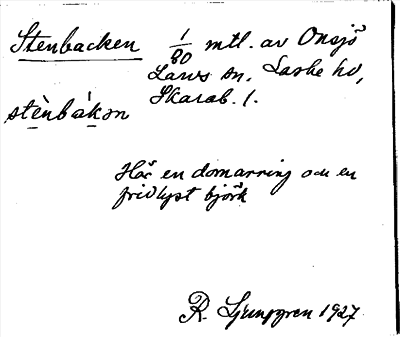 Stenbacken 1/80 mtl. av Onsjö
Larvs sn, Laske hd,
Skarab. l.
stènbákən
Här en domarring och en
fridlyst björk
R. Ljunggren 1927